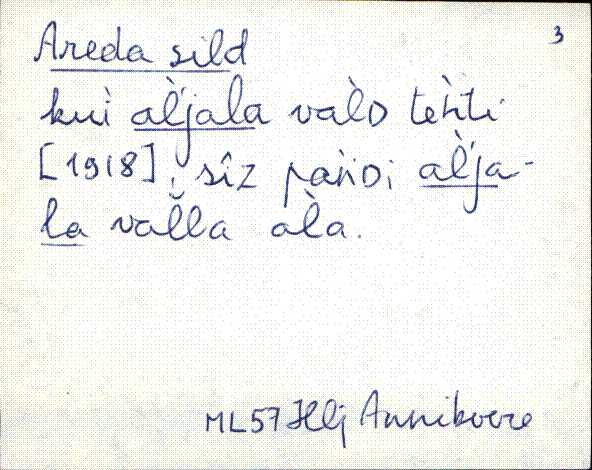 3
Areda sild
kui al̀jala val̀D teh̀ti
[1918], sîz pañ̀Di al̀ja-
la val̆la al̀a.
ML57 Hlj Annikvere